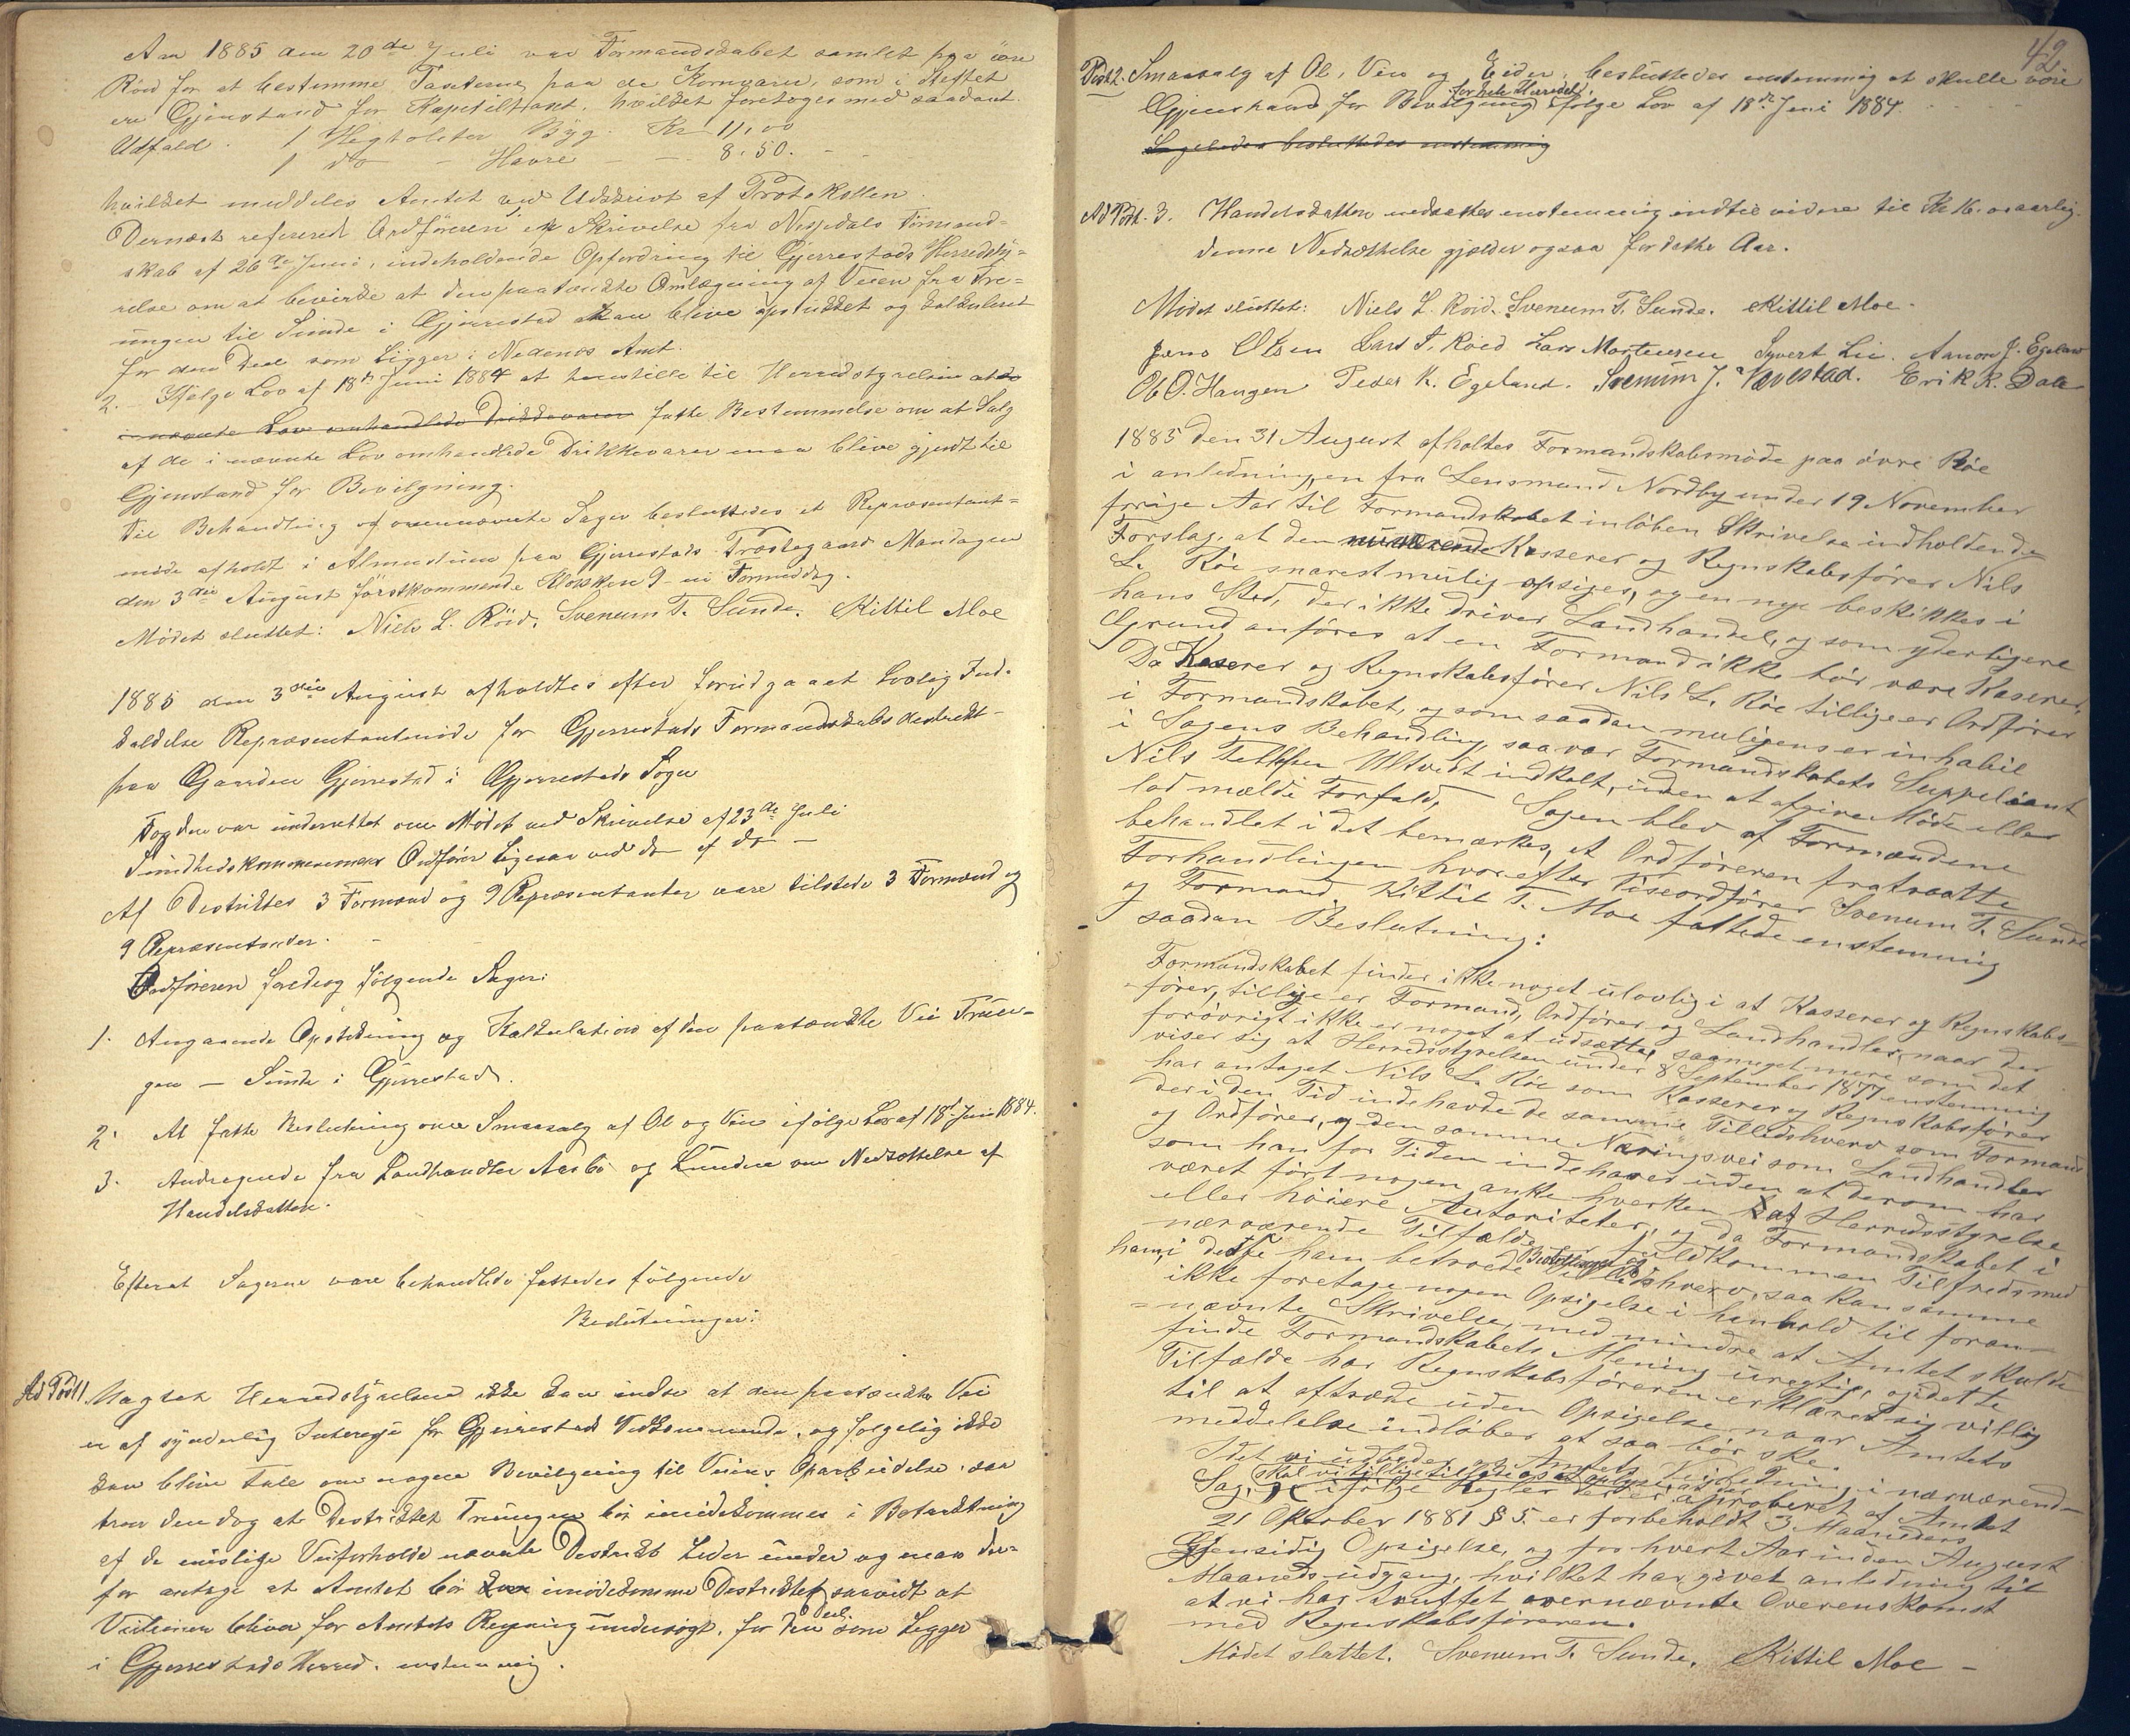 Aar 1885 den 20de Juli var Formandskabet samlet paa öire
Röid for at bestemme Taxterne paa de Kornvarer, som i Heftet
er Gjenstand for Kapeteltaxt, hvilket foretoges med saadant
Udfald. 1 Hegtoliter Byg. Kr 11,00
1 do - Havre - - 8.50. -
hvilket meddeles Amtet ved Udskrivt af Protokollen
Dernæst refererede Ordföreren en Skrivelse fra Nissedals Formand-
skab af 26de Juni, indeholdende Opfordring til Gjerrestads Herredsty-
relse om at bevirke at den paatænkte Omlægning af Veien fra Tre-
ungen til Sunde i Gjerrestad kan blive opstukket og kalkuleret
for den Deel som ligger i Nedenæs Amt.
2. Ifølge Lov af 18de Juni 1884 at henstille til Herredstyrelsen at de
i nævnte Lov omhandlede Drikkevarer fatte Bestemmelse om at Salg
af de i nævnte Lov omhandlede Drikkevarer maa blive gjort til
Gjenstand for Bevilgning.
Til Behandling af ovennævnte Sager besluttedes et Repræsentant=
möde afholdt i Almuestuen paa Gjerrestads Præstegaard Mandagen
den 3die August förstkommende Klokken 9 - ni Formiddag.
Mödet sluttet: Niels L. Röid. Svenum T. Sunde. Kittil Moe
1885 den 3die August afholdtes efter forudgaaet lovlig Ind-
kaldelse Repræsentantmöde for Gjerrestads Formandskabsdestrikt
paa Gaarden Gjerrestad i Gjerrestads Sogn
Fogden var underrettet om Mödet ved Skrivelse af 23de Juli
Sundhedskommisionens Ordförer ligesaa ved do af do -
Af Destriktes 3 Formænd og 9 Repræsentanter vare tilstede 3 Formænd og
9 Repræsentanter.
Ordföreren foredrog fölgende Sager:
1. Angaaende Opstikning og Kalkulation af den paatænkte Vei Treun-
gen - Sunde i Gjerrestad.
2. At fatte Beslutning om Smaasalg af Öl og Vin ifölge Lov af 18de Juni 1884.
3. Andragende fra Landhandler Aasbö og Lunden om Nedsættelse af
Handelsskatten.
Efterat Sagerne vare behandlede fattedes fölgende
Beslutninger:
Ad Post 1. Uagtet Herredstyrelsen ikke kan indse at den paatænkte Vei
er af synderlig Interesse for Gjerrestads Vedkommende, og følgelig ikke
kan blive Tale om nogen Bevilgning til Veiens Oparbeidelse, saa
tror den dog at Destriktet Treungen bör imödekommes i Betraktning
af de uuslige Veiforholde nævnte Destrikt lider under og man der-
for antage at Amtet bör imödekomme Destriktet saavidt at
Veilinien bliver for Amtets Regning undersögt, for den Deel som ligger
i Gjerrestads Herred. enstemmig.
42
Post 2. Smaasalg af Öl, Vin og Cider, besluttedes enstemmig at skulle være
for hele Herredet,
Gjenstand for Bevilgning ifölge Lov af 18de Juni 1884.
Ligeledes besluttedes enstemmig
Ad Post. 3. Handelsskatten nedsættes enstemmig indtil videre til Kr 16. aarlig
denne Nedsættelse gjælder ogsaa for dette Aar.
Mödet sluttet: Niels L. Röid. Svenum T. Sunde. Kittil Moe.
Jens Olsen Lars T. Röed Lars Mortensen Syvert Lie. Aanon J. Egeland
Ole O. Haugen Peder K. Egeland. Svenum J. Vævestad. Erik K. Dale
1885 den 31 August afholtes Formandskabsmöde paa övre Röe
i anledning en fra Lensmand Nordby under 19 November
forige Aar til Formandskabet inlöben Skrivelse indholdende
Forslag, at den nuværende Kasserer og Regnskabsförer Nils
L. Röe snarest mulig opsiges, og en nye beskikkes i
hans Sted, der ikke driver Landhandel, og som yderligere
Grund anföres at en Formand ikke bör være Kaserer,
Da Kaserer og Regnskabsförer Nils L. Röe tillige er Ordförer
i Formandskabet, og som saadan muligens er inhabil
i Sagens Behandling, saa var Formandskabets Suppleant
Nils Tellefsen Ultvedt indkalt, uden at afgive Möde eller
lod mælde Forfald, Sagen blev af Formændene
behandlet i det bemærkes, at Ordföreren fratraatte
Forhandlingen hvorefter Viseordförer Svenum T. Sunde
og Formand Kittil T. Moe fattede enstemmig
saadan Beslutning:
Formandskabet finder ikke noget ulovlig i at Kasserer og Regnskabs=
förer, tillige er Formand, Ordförer og Landhandler, naar der
forövrigt ikke er noget at udsætte, saameget mere som det
viser sig at Herredsstyrelsen under 8 September 1877 enstemmig
har antaget Nils L. Röe som Kasserer og Regnskabsförer
der i den Tid indehavde de samme Tillidshverv som Formand
og Ordförer, og den samme Næringsvei som Landhandler
som han for Tiden indehaver uden at derom har
været fört nogen anke hverken af Herredsstyrelse
eller höiere Autoriteter, og da Formandskabet i
nærværende Tilfælde er fuldkommen Tilfreds med
ham, i dette ham betroede Bestillinger og Tillidshverv, saa kan samme
ikke foretage nogen Opsigelse i henhold til foran-
=nævnte Skrivelse, med mindre at Amtet skulde
finde Formandskabets Mening uregtig, og i dette
Tilfælde har Regnskabsföreren erklæret sig villig
til at aftræde uden Opsigelse naar Amtets
meddelelse indlöber at saa bör ske.
Idet vi udbeder os Amtets Veiledning i nærværende
Sag, skal vi tillige tilföie at ifölge Regler approberet af Amtet
21 Oktober 1881 § 5. er forbeholdt 3 Maaneders
Gjensidig Opsigelse, og for hvert Aar inden August
Maaneds udgang, hvilket har givet anledning til
at vi har truffet overnævnte Overenskomst
med Regnskabsföreren.
Mödet sluttet. Svenum T. Sunde, Kittil Moe -